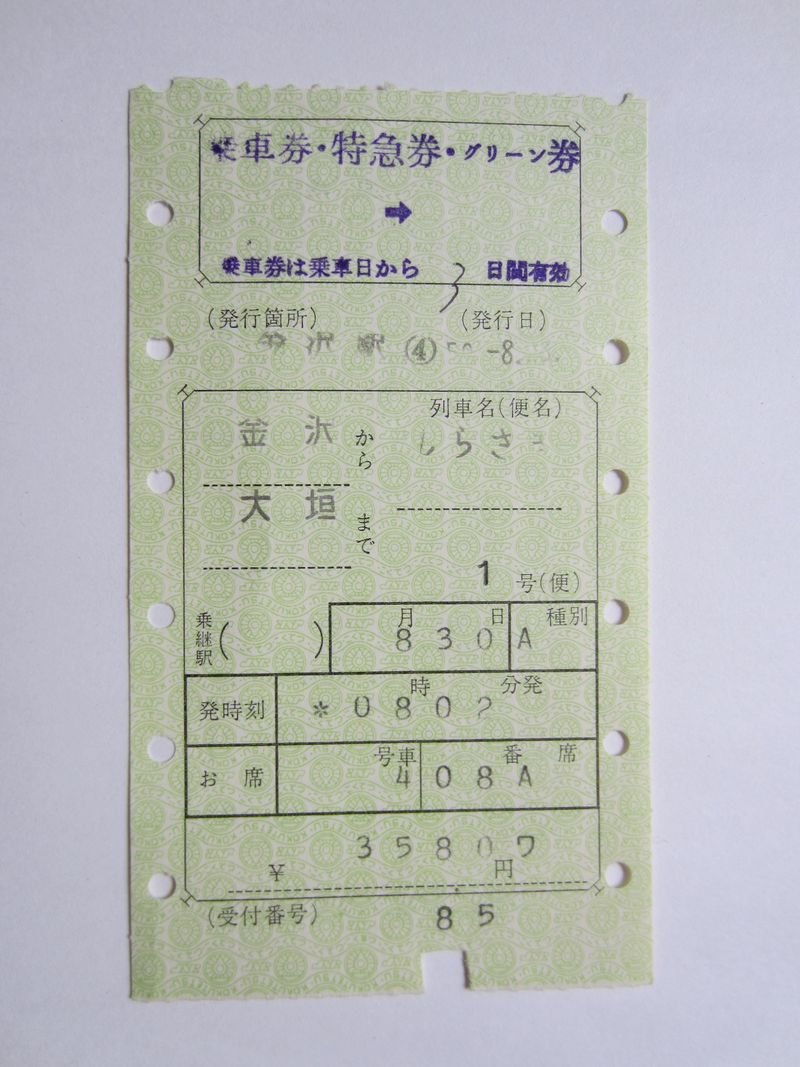 乗車券・特急券・グリーン券
➡
乗車券は乗車日から 3 日間有効
(発行箇所) (発行日)
金沢駅 ④ -8
列車名(便名)
金沢 から しらさぎ
大垣 まで
1 号(便)
乗継駅( ) 月 日 種別
8 30 A
発時刻 時 分発
*0802
お席 号車 番 席
4 08 A
35807
¥ 円
(受付番号) 85